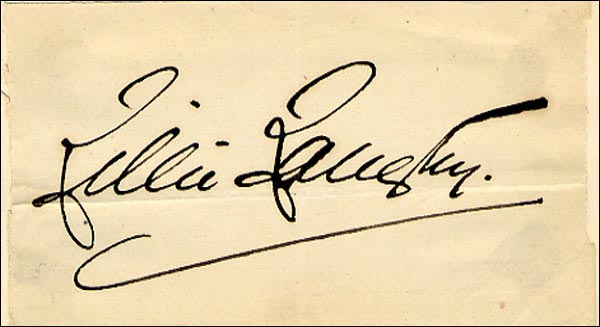 Lillie Langtry.